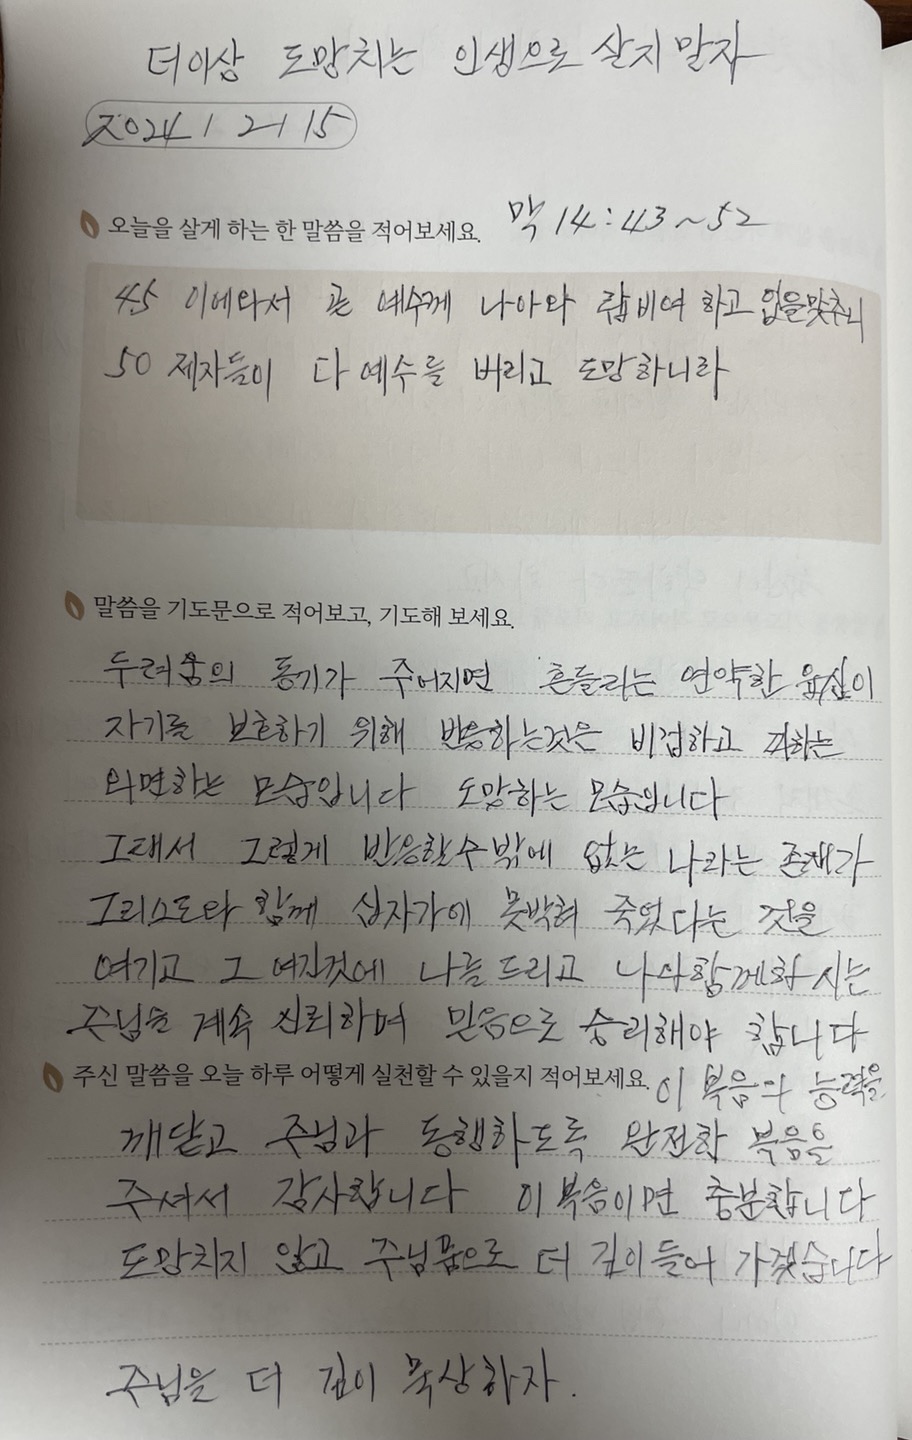 더이상 도망치는 인생으로 살지말자
2024 1 21 15
오늘을 살게 하는 한 말씀을 적어보세요. 막 14:43~52
45 이에와서 곧 예수께 나아와 랍비여 하고 입을맞추니
50 제자들이 다 예수를 버리고 도망하니라
말씀을 기도문으로 적어보고, 기도해 보세요.
두려움의 동기가 주어지면 흔들리는 연약한 육신이
자기를 보호하기 위해 반응하는것은 비겁하고 피하는
외면하는 모습입니다 도망하는 모습입니다
그래서 그렇게 반응할수밖에 없는 나라는 존재가
그리스도와 함께 십자가에 못박혀 죽었다는 것을
여기고 그 여긴것에 나를드리고 나와함께하시는
주님을 계속 신뢰하며 믿음으로 승리해야 합니다
주신 말씀을 오늘 하루 어떻게 실천할 수 있을지 적어보세요. 이 복음의 능력을
깨닫고 주님과 동행하도록 완전한 복음을
주셔서 감사합니다 이복음이면 충분합니다
도망치지 않고 주님품으로 더 깊이들어 가겠습니다
주님을 더 깊이 묵상하자.